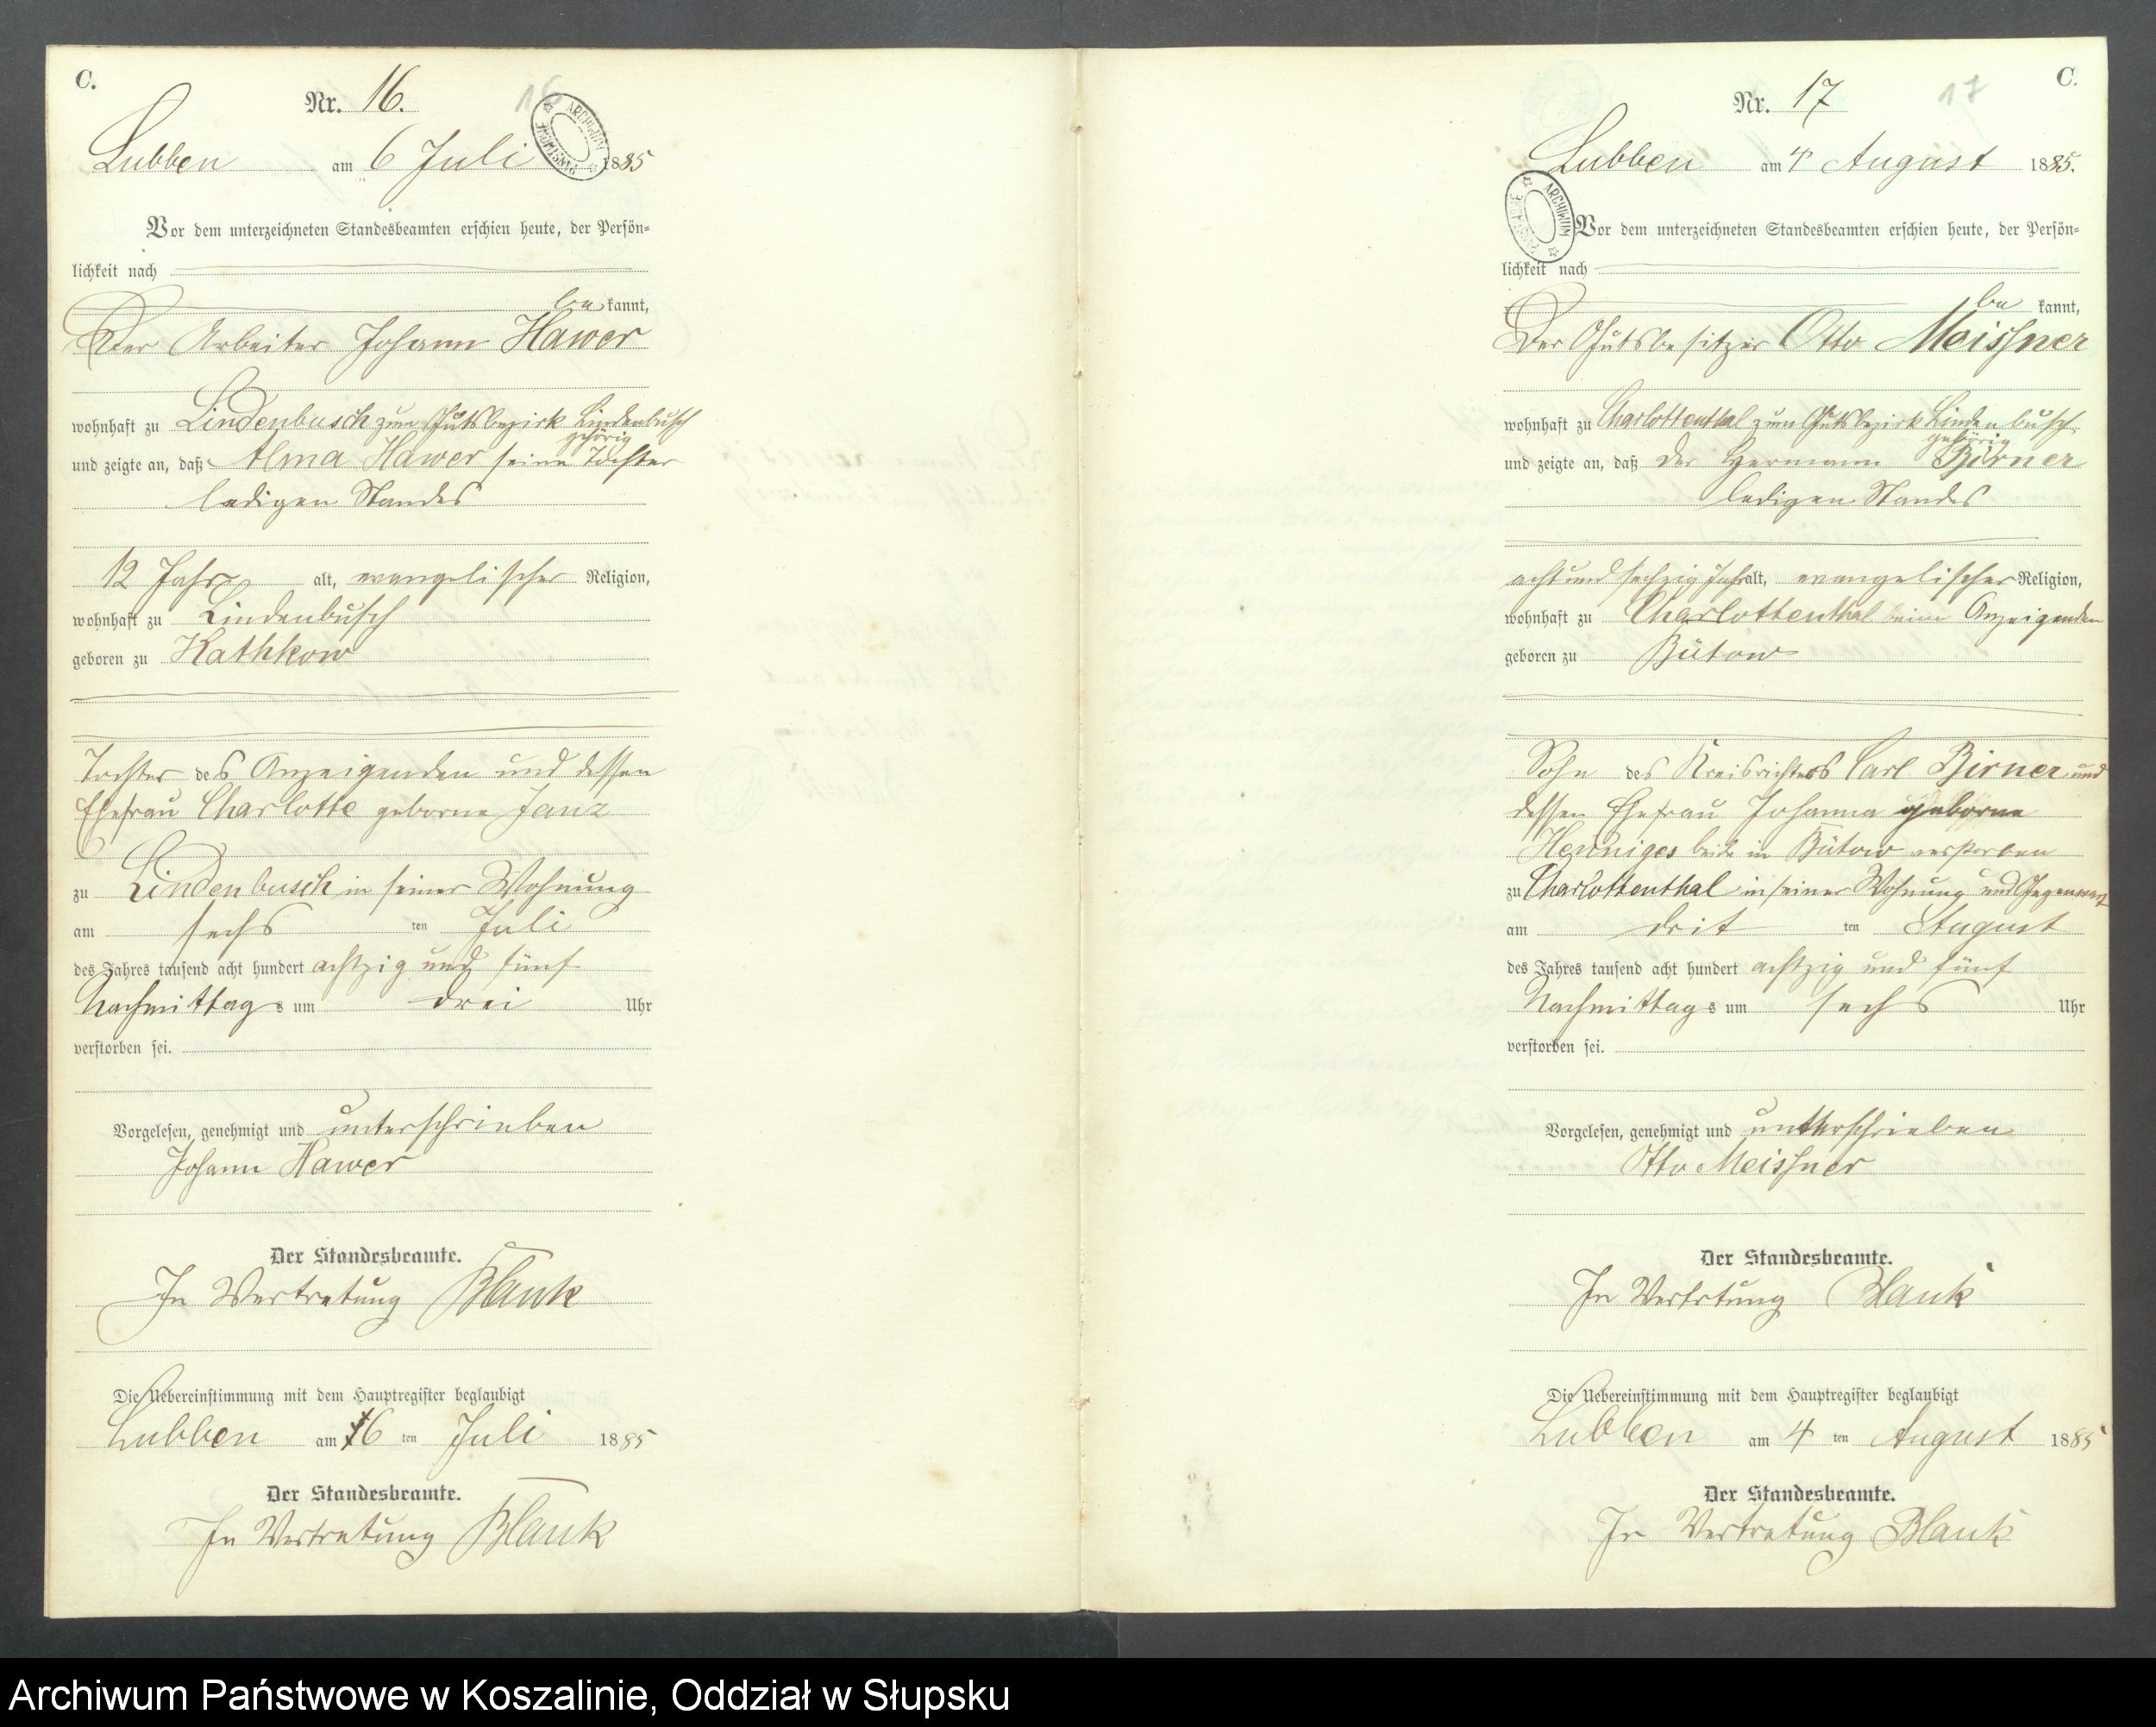 C.
Nr. 16.
16
ARCHIWUM PAŃSTWOWE
Lubben am 6 Juli 1885
Vor dem unterzeichneten Standesbeamten erschien heute, der Persön-
lichkeit nach
be kannt,
Der Arbeiter Johann Hawer
wohnhaft zu Lindenbusch zum Gutsbezirk Lindenbusch
gehörig
und zeigte an, daß Alma Hawer seine Tochter
ledigen Standes
12 Jahre alt, evangelischer Religion,
wohnhaft zu Lindenbusch
geboren zu Kathkow
Tochter des Anzeigenden und dessen
Ehefrau Charlotte geborne Janz
zu Lindenbusch in seiner Wohnung
am sechs ten Juli
des Jahres tausend acht hundert achtzig und fünf
Nachmittags um drei Uhr
verstorben sei.
Vorgelesen, genehmigt und unterschrieben
Johann Hawer
Der Standesbeamte.
In Vertretung Blank
Die Uebereinstimmung mit dem Hauptregister beglaubigt
Lubben am 6 ten Juli 1885
Der Standesbeamte.
In Vertretung Blank
C.
Nr. 17
17
Lubben am 4 August 1885.
ARCHIWUM PAŃSTWOWE
Vor dem unterzeichneten Standesbeamten erschien heute, der Persön-
lichkeit nach
be kannt,
Der Gutsbesitzer Otto Meissner
wohnhaft zu Charlottenthal zum Gutsbezirk Lindenbusch
gehörig
und zeigte an, daß der Hermann Birner
ledigen Standes
acht und sechzig Jahr alt, evangelischer Religion,
wohnhaft zu Charlottenthal beim Anzeigenden
geboren zu Bütow
Sohn des Kreisrichters Carl Birner und
dessen Ehefrau Johanna geborne
Henniges beide in Bütow verstorben
zu Charlottenthal in seiner Wohnung und Gegenwart
am drit ten August
des Jahres tausend acht hundert achtzig und fünf
Nachmittags um sechs Uhr
verstorben sei.
Vorgelesen, genehmigt und unterschrieben
Otto Meissner
Der Standesbeamte.
In Vertretung Blank
Die Uebereinstimmung mit dem Hauptregister beglaubigt
Lubben am 4 ten August 1885
Der Standesbeamte.
In Vertretung Blank
Archiwum Państwowe w Koszalinie, Oddział w Słupsku